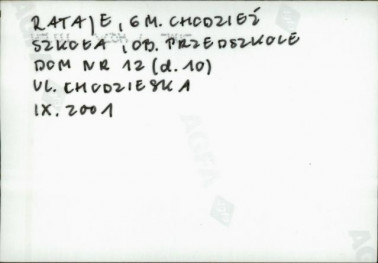 RATAJE, GM. CHODZIEŻ
SZKOŁA, OB. PRZEDSZKOLE
DOM NR 12 (d. 10)
UL. CHODZIESKA
IX. 2001
AGFA
AGFA